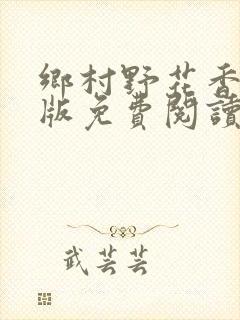 鄉村野花香
版免費閱讀
武芸芸